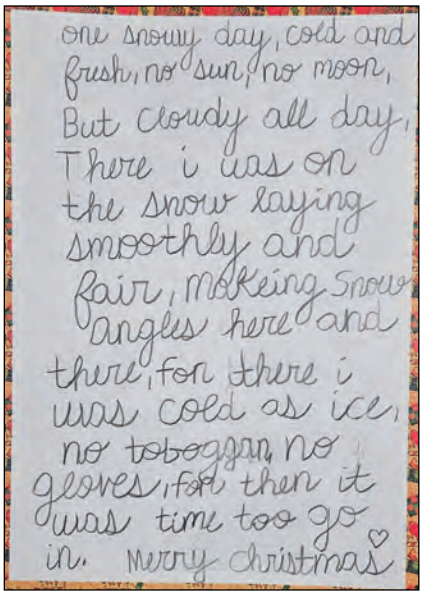 one snowy day, cold and
fresh, no sun, no moon,
But cloudy all day,
There i was on
the snow laying
smoothly and
fair, makeing snow
angles here and
there, for there i
was cold as ice,
no toboggan, no
gloves, for then it
was time too go
in. merry christmas